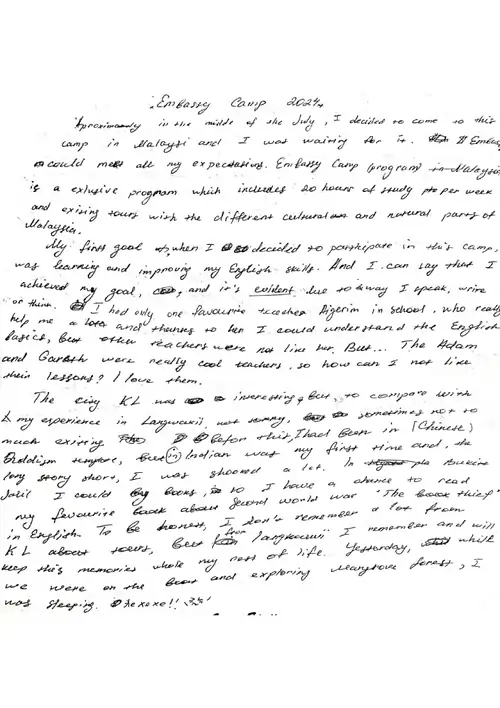 Embassy Camp 2024
Aproximandy in the middle of the July, I decided to come to this
camp in Malaysi and I was wairing for it. Embassy
could all my expectations. Embassy Camp (program)
is a exlusive program which includes 20 hours of study per week
and exiring tours with the different cultural and natural parts of
Malaysia.
My first goal, when I decided to participate in this camp,
was learning and improving my English skills. And I can say that I
achieved my goal, and it's evident due to way I speak, write
or think. I had only one favourite teacher Aigerim in school, who really
help me a lot and thanks to her I could understand the English
basics, but other teachers were not like her. But... The Adam
and Gareth were really cool teachers, so how can I not like
their lessons? I love them.
The city KL was interesting, but, to compare with
my experience in Langwawii, not sometimes not so
much exiring Befor this, I had been in (Chinese)
Buddism temple, but in Indian was my first time and, the
long story short, I was shooked a lot. In Bukire
Jalil I could books, so I have a chance to read
my favourite book about second world war "The book thief"
in English. To be honest, I don't remember a lot from
KL about tours, but from langkawii I remember and will
keep this memories whole my rest of life. Yesterday, while
we were on the boat and exploring Mangrove forest, I
was sleeping. hexexe!!